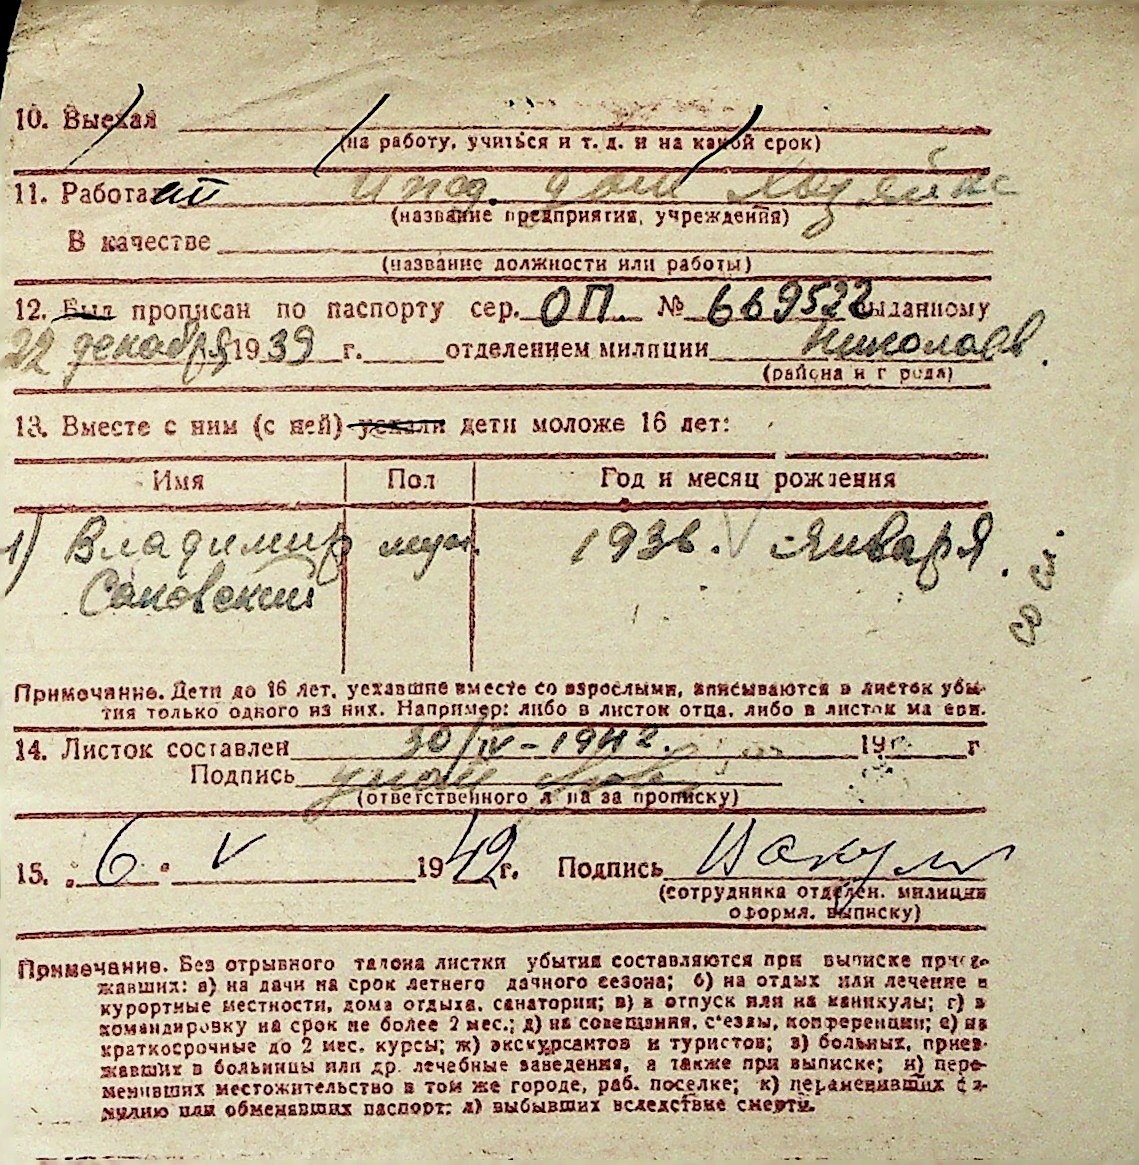 10. Выехал
(на работу, учиться и т. д. и на какой срок)
11. Работает
(название предприятия, учреждения)
В качестве
(название должности или работы)
12. Был прописан по паспорту сер. ОП. № 669522 выданному
22 декабря 1939 г. отделением милиции Николаев.
(района и города)
13. Вместе с ним (с ней) уехали дети моложе 16 лет:
Имя Пол Год и месяц рождения
1) Владимир муж. 1936. января.
Саковский
Примечание. Дети до 16 лет, уехавшие вместе со взрослыми, вписываются в листок убы-
тия только одного из них. Например: либо в листок отца, либо в листок матери.
14. Листок составлен 30/IV-1942. 19 г
Подпись
(ответственного лица за прописку)
15. 6 V 1942 г. Подпись
(сотрудника отделен. милиции
оформл. выписку)
Примечание. Без отрывного талона листки убытия составляются при выписке приез-
жавших: а) на дачи на срок летнего дачного сезона; б) на отдых или лечение в
курортные местности, дома отдыха, санатории; в) в отпуск или на каникулы; г) в
командировку на срок не более 2 мес.; д) на совещания, с'езды, конференции; е) на
краткосрочные до 2 мес. курсы; ж) экскурсантов и туристов; з) больных, приез-
жавших в больницы или др. лечебные заведения, а также при выписке; и) пере-
менивших местожительство в том же городе, раб. поселке; к) переменивших фа-
милию или обменявших паспорт; л) выбывших вследствие смерти.